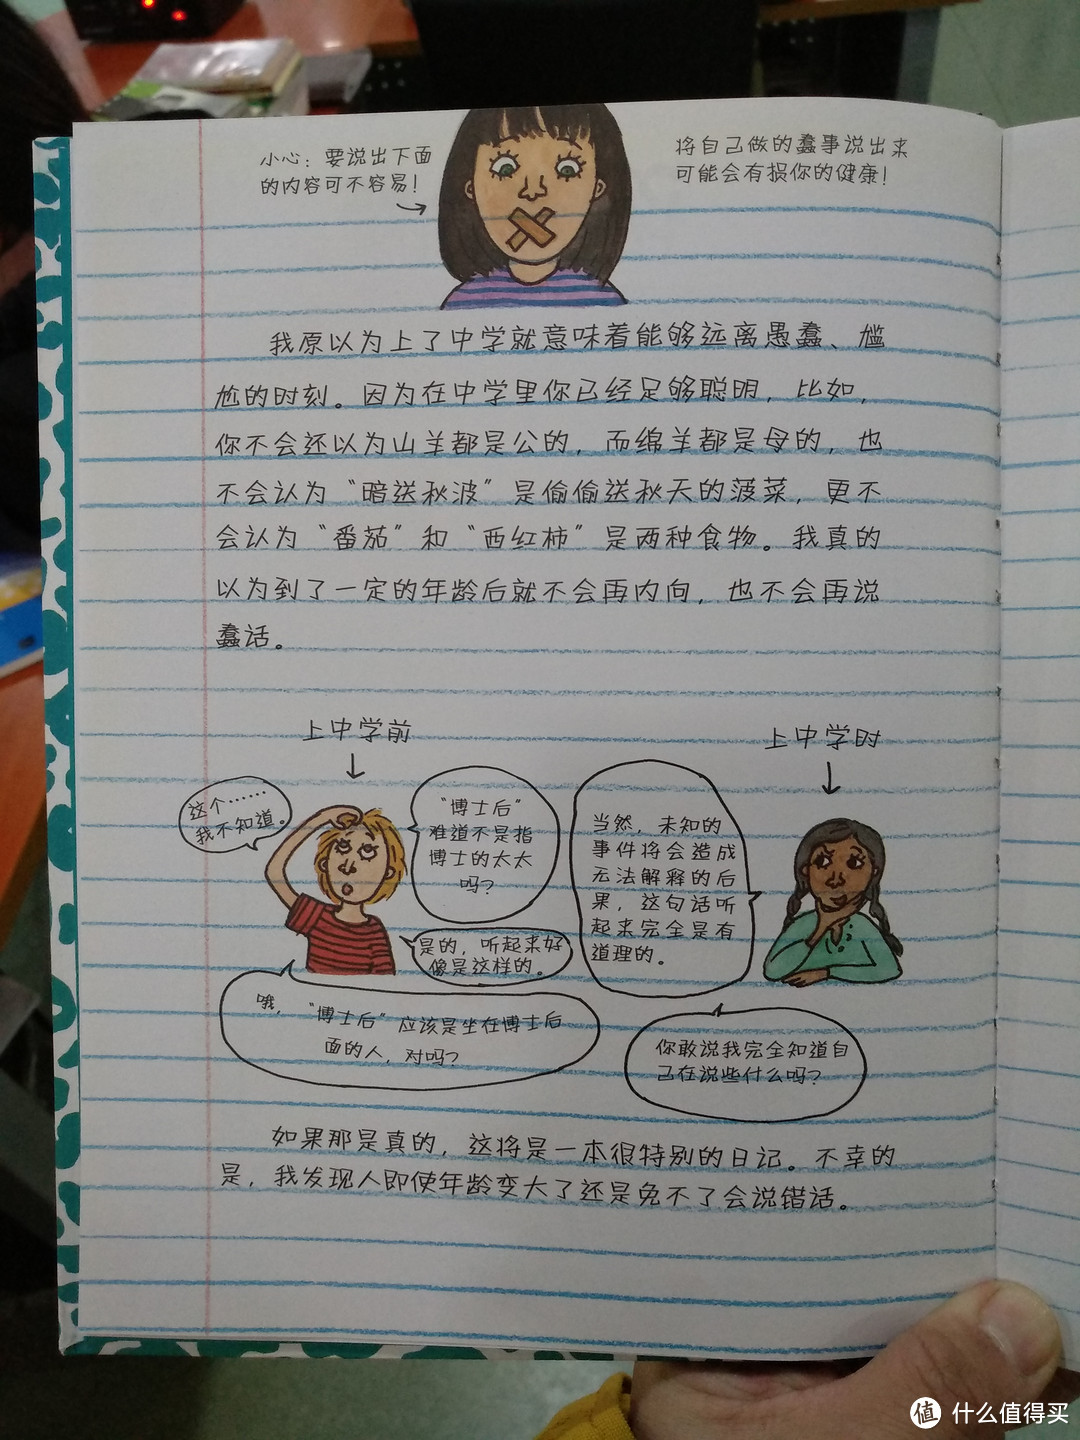 小心：要说出下面
的内容可不容易！
将自己做的蠢事说出来
可能会有损你的健康！
我原以为上了中学就意味着能够远离愚蠢、尴
尬的时刻。因为在中学里你已经足够聪明，比如，
你不会还以为山羊都是公的，而绵羊都是母的，也
不会认为“暗送秋波”是偷偷送秋天的菠菜，更不
会认为“番茄”和“西红柿”是两种食物。我真的
以为到了一定的年龄后就不会再内向，也不会再说
蠢话。
上中学前
这个……
我不知道。
“博士后”
难道不是指
博士的太太
吗？
是的，听起来好
像是这样的。
哦，“博士后”应该是坐在博士后
面的人，对吗？
上中学时
当然，未知的
事件将会造成
无法解释的后
果，这句话听
起来完全是有
道理的。
你敢说我完全知道自
己在说些什么吗？
如果那是真的，这将是一本很特别的日记。不幸的
是，我发现人即使年龄变大了还是免不了会说错话。
值 什么值得买